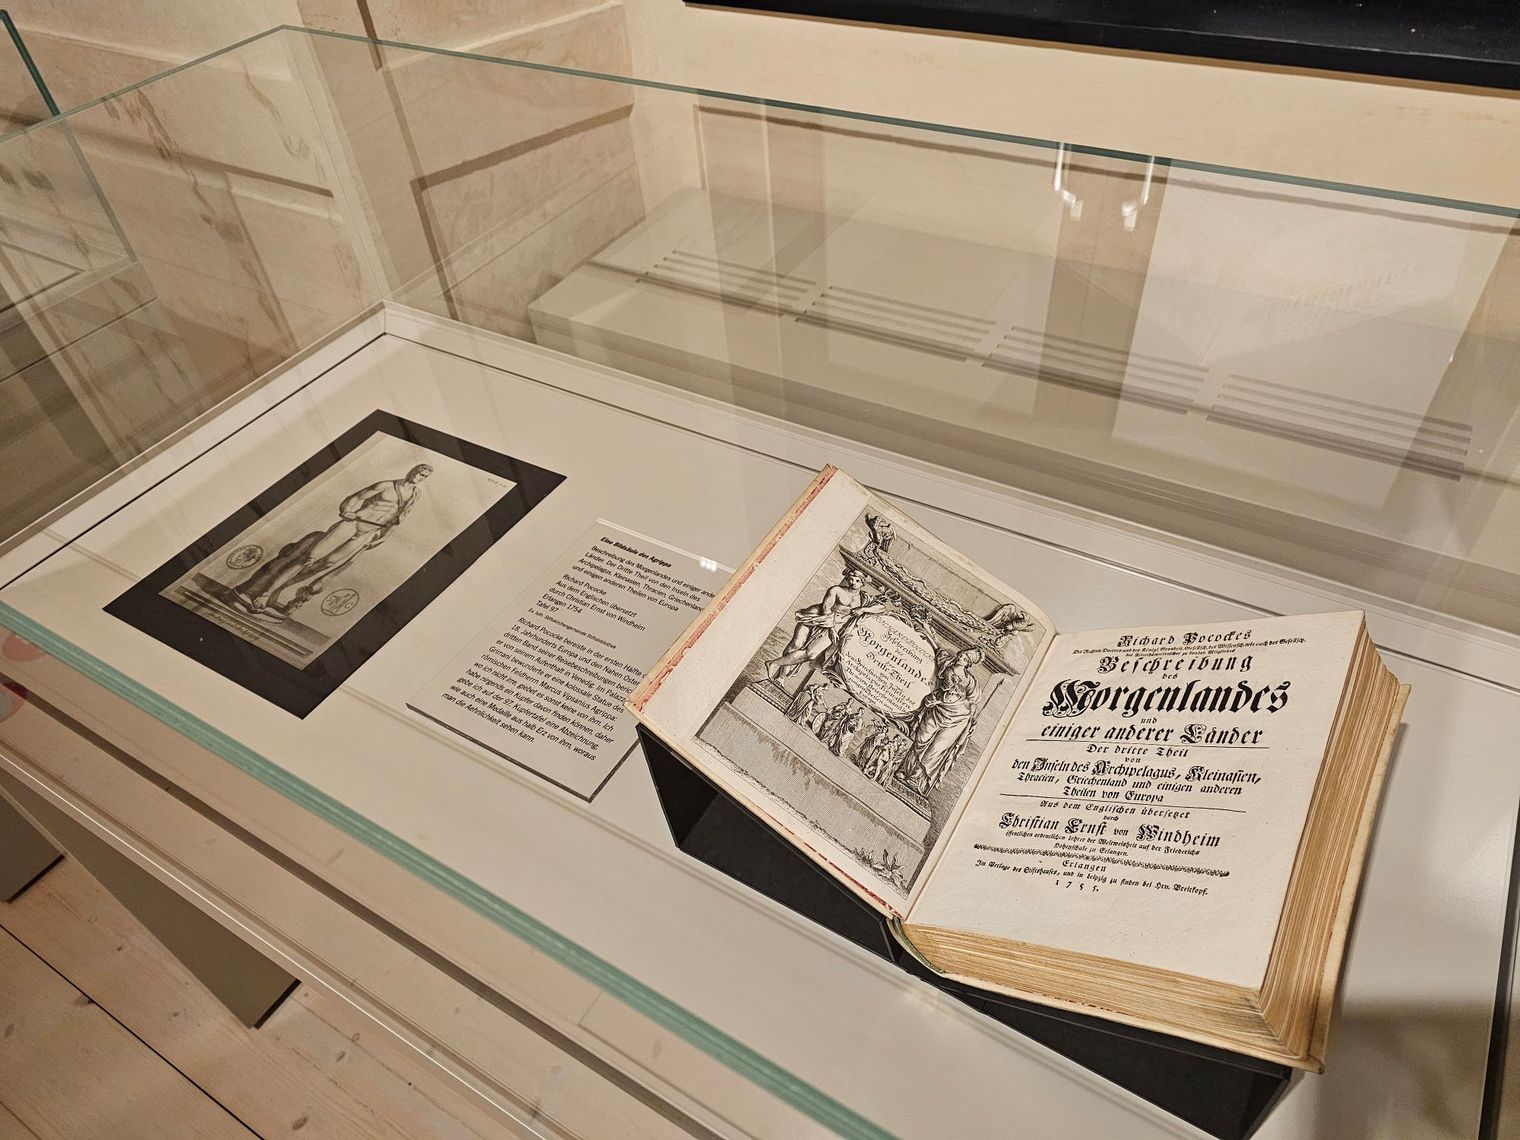 Eine Bildsäule des Agrippa
Beschreibung des Morgenlandes und einiger ander
Länder. Der Dritte Theil von den Inseln des
Archipelagus, Kleinasien, Thracien, Griechenland
und einigen anderen Theilen von Europa
Richard Pococke
Aus dem Englischen übersetzt
durch Christian Ernst von Windheim
Erlangen 1754
Tafel 97
Richard Pococke bereiste in der ersten Hälfte
18. Jahrhunderts Europa und den Nahen Osten
dritten Band seiner Reisebeschreibungen berich
er von seinem Aufenthalt in Venedig. Im Palazzo
Grimani bewunderte er eine kolossale Statue des
römischen Feldherrn Marcus Vipsanius Agrippa:
wo ich nicht irre, giebet es sonst keine von ihm. Ich
habe nirgends ein Kupfer davon finden können, daher
gebe ich auf der 97. Kupfertafel eine Abzeichnung,
wie auch eine Medaille aus halb Erz von ihm, woraus
man die Aehnlichkeit sehen kann.
Beschreibung
des
Morgenlandes
Dritter Theil
Richard Pocockes
Beschreibung
des
Morgenlandes
und
einiger anderer Länder
Der dritte Theil
von
den Inseln des Archipelagus, Kleinasien,
Thracien, Griechenland und einigen anderen
Theilen von Europa
Aus dem Englischen übersetzet
durch
Christian Ernst von Windheim
öffentlichen ordentlichen Lehrer der Weltweisheit auf der Friederichs
Hohenschule zu Erlangen.
Erlangen
Im Verlage des Stifthauses, und in Leipzig zu finden bei Hrn. Breitkopf.
1755.